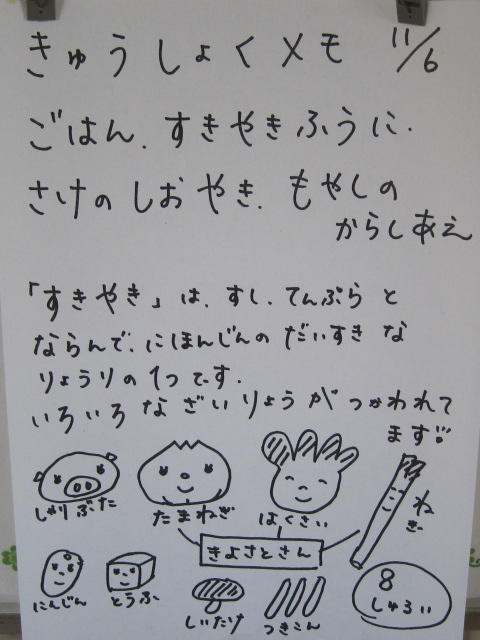 きゅうしょくメモ 11/6
ごはん、すきやきふうに、
さけのしおやき、もやしの
からしあえ
「すきやき」は、すし、てんぷらと
ならんで、にほんじんのだいすきな
りょうりの1つです。
いろいろなざいりょうがつかわれて
ます!!
しゃりぶた
たまねぎ
はくさい
ねぎ
きよさとさん
にんじん
とうふ
しいたけ
つきこん
8
しゅるい